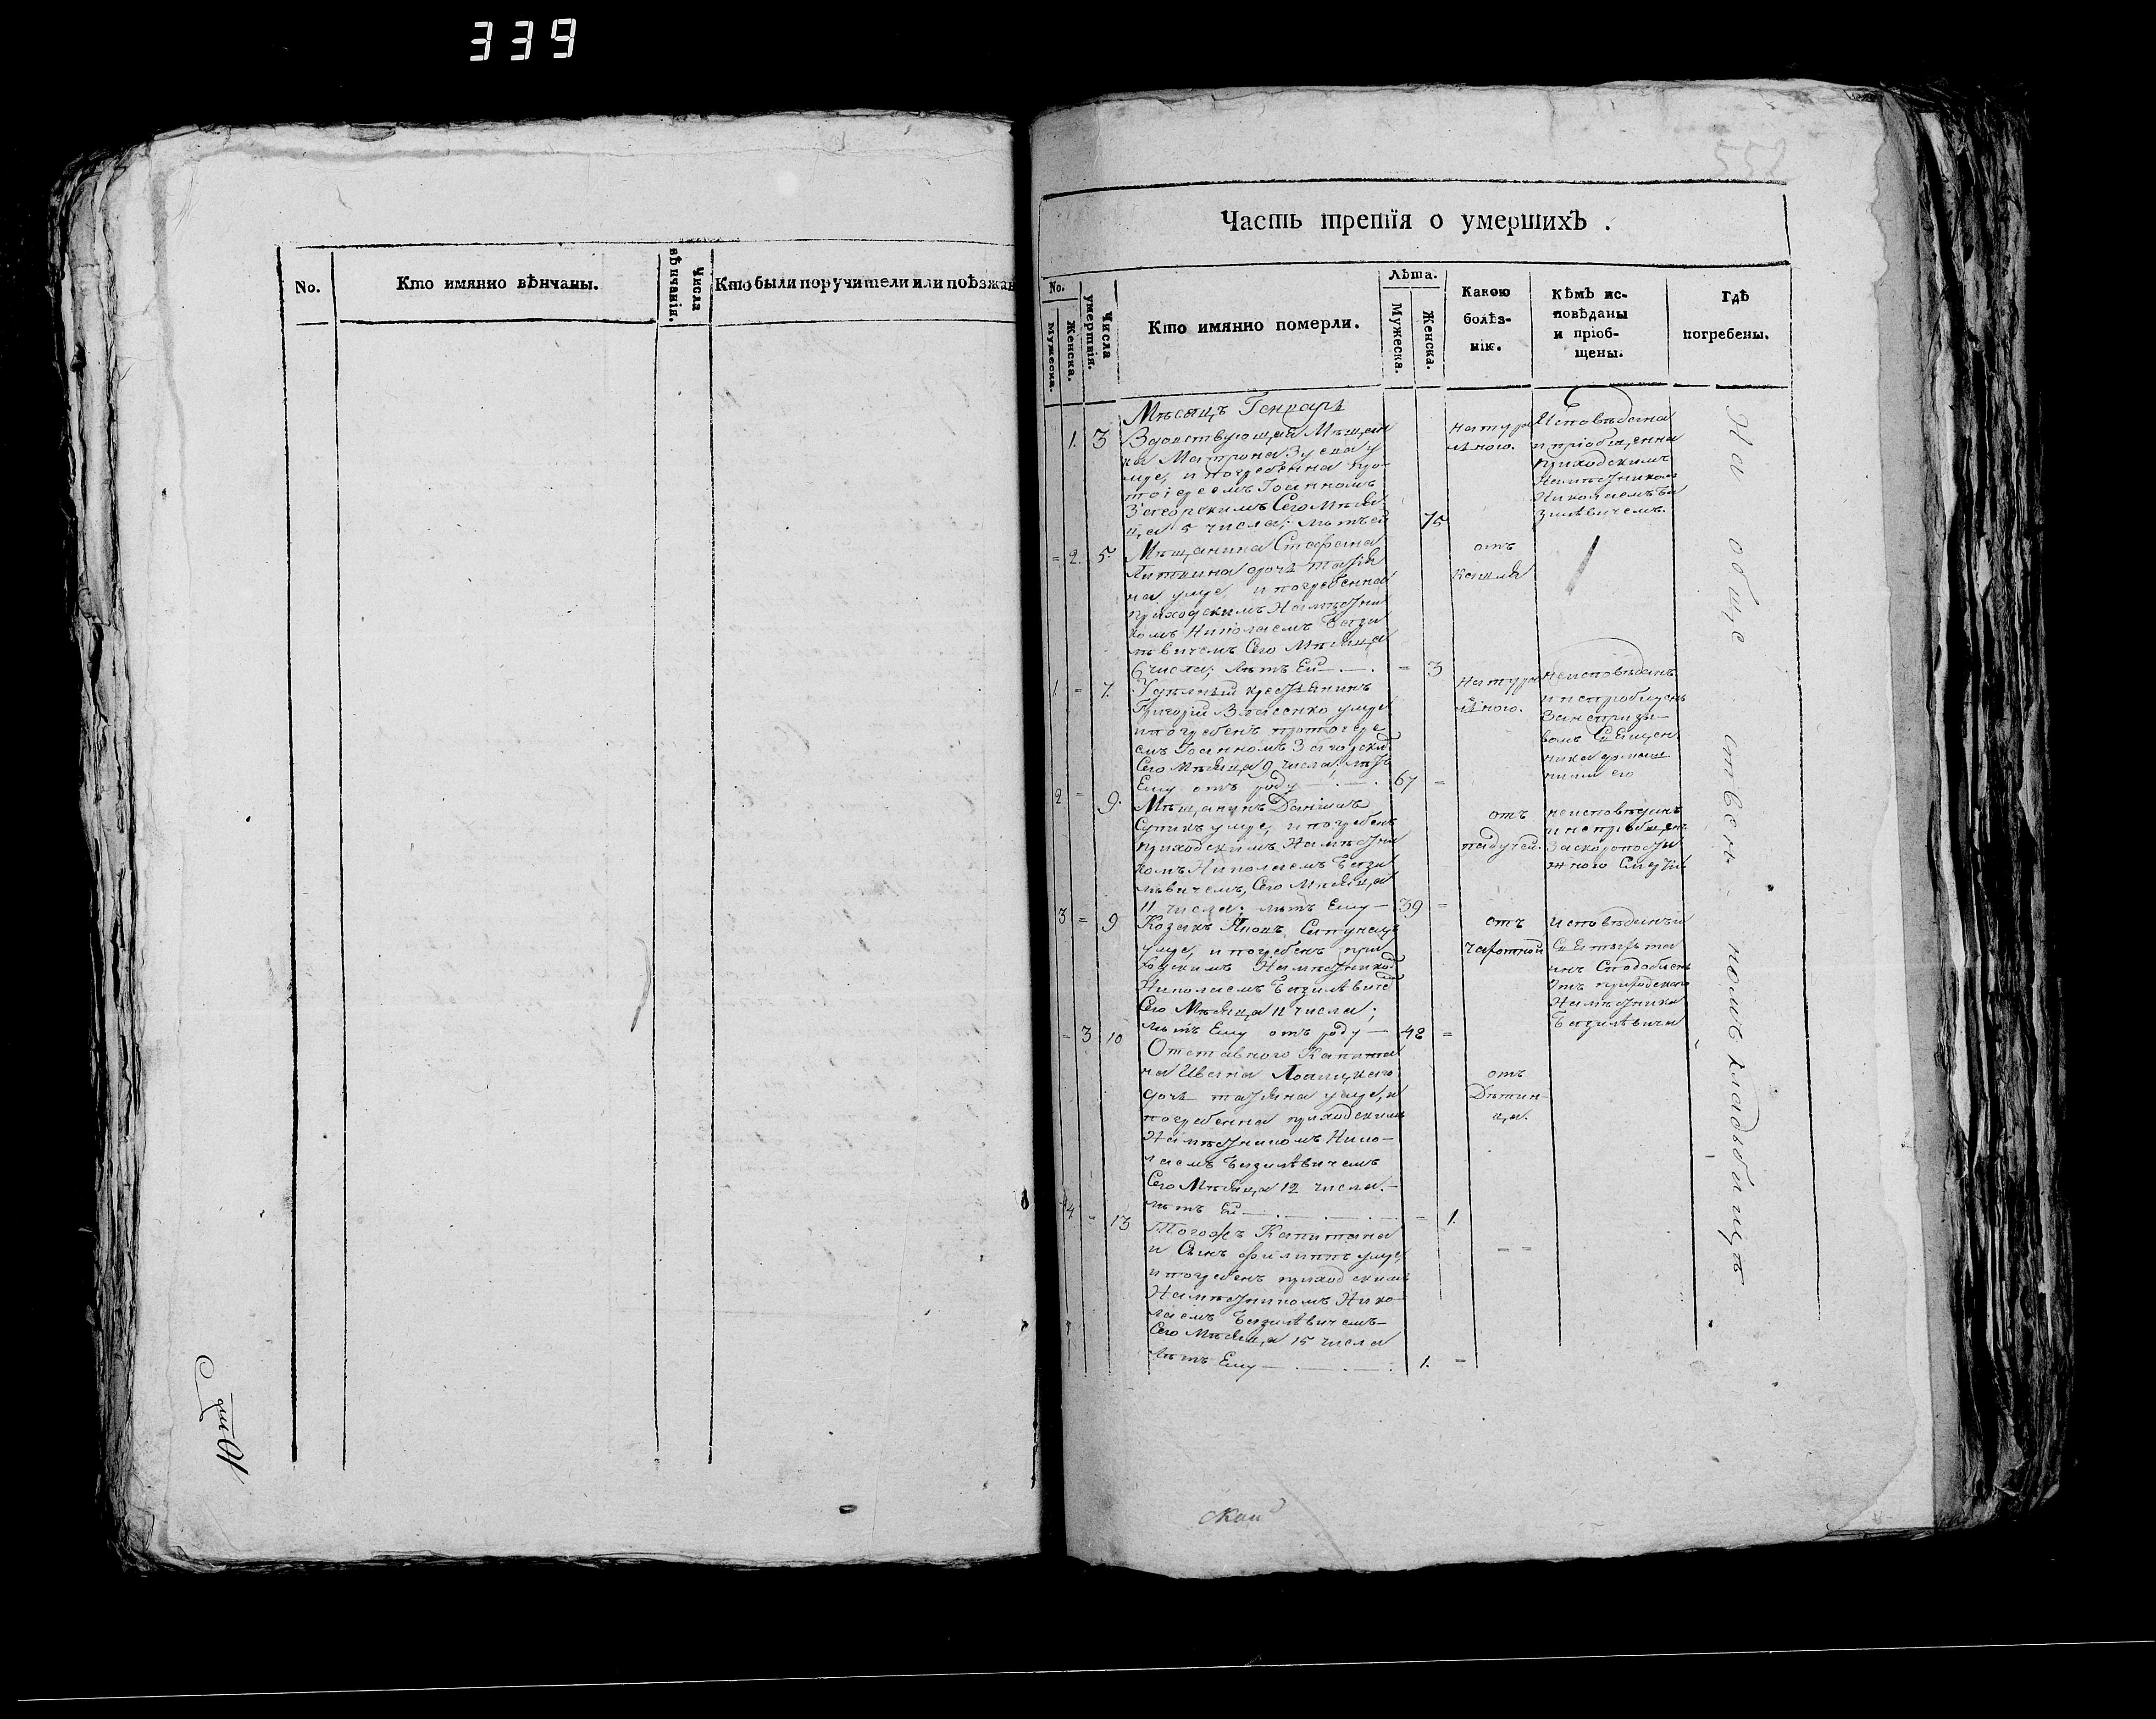 339
No.
Кто имянно вѣнчаны.
Числа вѣнчанія.
Кто были поручители или поѣзжан
552
Часть третія о умершихЪ .
No.
Мужеска.
Женска.
Числа умертвія.
Кто имянно померли.
Лѣта.
Мужеска.
Женска.
Какою болѣз-
нію.
КѢмЪ ис-
повѣданы
и пріоб-
щены.
ГдѢ
погребены.
Мѣсяцъ Генварь
1. 3
Вдовствующая Мѣщан
ка Матрона
умре, и погребенна про-
тоіереемъ Іоанномъ
Загорскимъ Сего Мѣся
ца 5 числа; лѣтъ ей 75
натура
льною.
Исповѣдана
и пріобщенна
приходскимъ
Намѣстником
Николаемъ Ба
зилѣвичемъ.
= 2. 5.
Мѣщанина Стефана
дочь Татія
на умре и погребенна
приходскимъ Намѣстни
комъ Николаемъ Бази
лѣвичемъ Сего Мѣсяца
6 числа; лѣтъ Ей = 3
отъ
кашля
1. = 7.
Удѣлный крестянинъ
Григорій Власенко умре
и погребенъ протоіере
емъ Іоанномъ Загорски
Сего Мѣсяца 9 числа. лѣтъ
Ему отъ роду 67 =
натура
льною.
неисповѣданъ
и непріобщенъ
за непризы-
вомъ Священ
ника домаш
ними его
2 = 9.
Мѣщанинъ Даніилъ
умре, и погребенъ
приходскимъ Намѣстни
комъ Николаемъ Бази
лѣвичемъ, Сего Мѣсяца
11 числа; лѣтъ Ему 39 =
отъ
падучей.
неисповѣданъ
и непріобщенъ
за скоропости
жною Смертію
3 = 9
Козакъ
умре, и погребенъ при
ходскимъ Намѣстнико
Николаемъ Базилѣвиче
Сего Мѣсяца 11 числа;
лѣтъ Ему отъ роду 48 =
отъ
чахотной
Исповѣданъ и
Св
инъ Сподобленъ
отъ приходского
Намѣстника
Базилѣвича
= 3 10
Отставного Капита
на Ивана
дочь татіяна умре, и
погребенна приходским
Намѣстникомъ Нико-
лаемъ Базилѣвичемъ
Сего Мѣсяца 12 числа.
лѣтъ Ей = 1.
отъ
Дѣтин-
ца.
4 = 13
Тогожъ Капитана
и Сынъ Филиппъ умре,
и погребенъ приходским
Намѣстникомъ Нико
лаемъ Базилѣвичемъ
Сего Мѣсяца 15 числа
лѣтъ Ему 1. =
На общественномъ кладбищѣ